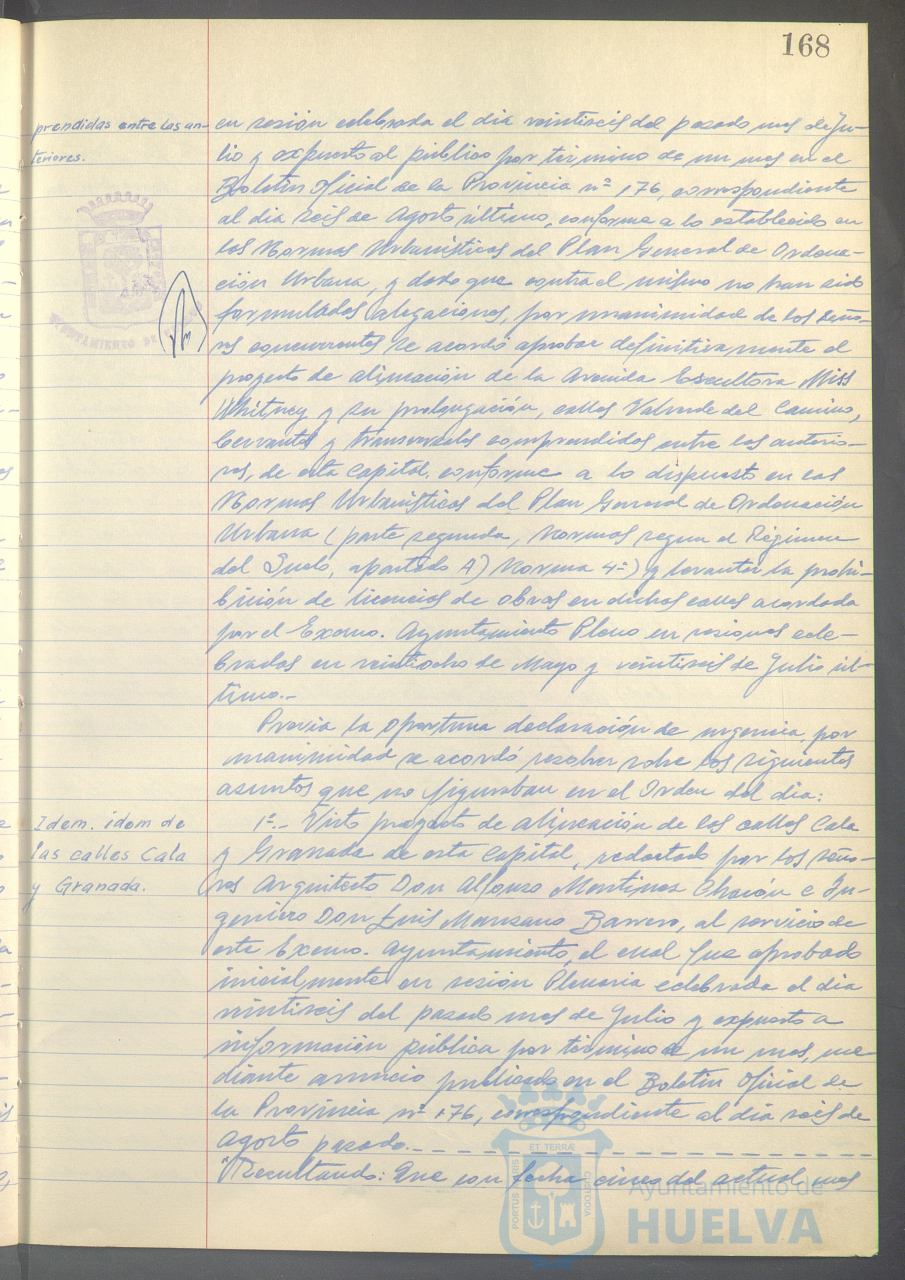 168
prendidas entre las an-
teriores.
en sesión celebrada el día veintiseis del pasado mes de Ju-
lio y expuesto al público por término de un mes en el
Boletín Oficial de la Provincia nº 176, correspondiente
al dia seis de Agosto último, conforme a lo establecido en
las Normas Urbanísticas del Plan General de Ordena-
ción Urbana, y dado que contra el mismo no han sido
formuladas alegaciones, por unanimidad de los seño-
res concurrentes se acordó aprobar definitivamente el
proyecto de alineación de la Avenida Escultora Miss
Whitney y su prolongación, calles Valverde del Camino,
Cervantes y transversales comprendidas entre las anterio-
res, de esta Capital, conforme a lo dispuesto en las
Normas Urbanísticas del Plan General de Ordenación
Urbana (parte segunda, Normas segun el Régimen
del Suelo, apartado A) Norma 4ª) y levantar la prohi-
bición de licencias de obras en dichas calles acordada
por el Excmo. Ayuntamiento Pleno en sesiones cele-
bradas en veintiocho de Mayo y veintiseis de Julio úl-
timo.-
Previa la oportuna declaración de urgencia, por
unanimidad se acordó resolver sobre los siguientes
asuntos que no figuraban en el Orden del dia:
Idem. idem de
las calles Cala
y Granada.
1º.- Visto proyecto de alineación de las calles Cala
y Granada de esta Capital, redactado por los seño-
res Arquitecto Don Alfonso Martinez Chacón e In-
geniero Don Luis Manzano Barrero, al servicio de
este Excmo. Ayuntamiento, el cual fue aprobado
inicialmente en sesión Plenaria celebrada el dia
veintiseis del pasado mes de Julio y expuesto a
información pública por término de un mes, me-
diante anuncio publicado en el Boletín Oficial de
la Provincia nº 176, correspondiente al dia seis de
Agosto pasado.
"Resultando: Que con fecha cinco del actual mes
AYUNTAMIENTO DE
ET TERRÆ
PORTUS MARIS
CUSTODIA
Ayuntamiento de
HUELVA